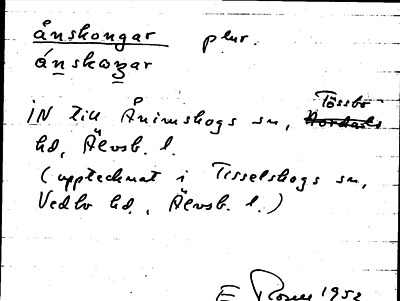 ånskongar plur.
ánskoŋar
IN till Ånimskogs sn, Tössbo
hd, Älvsb. l.
(upptecknat i Tisselskogs sn,
Vedbo hd., Älvsb. l.)
E Rosell 1952